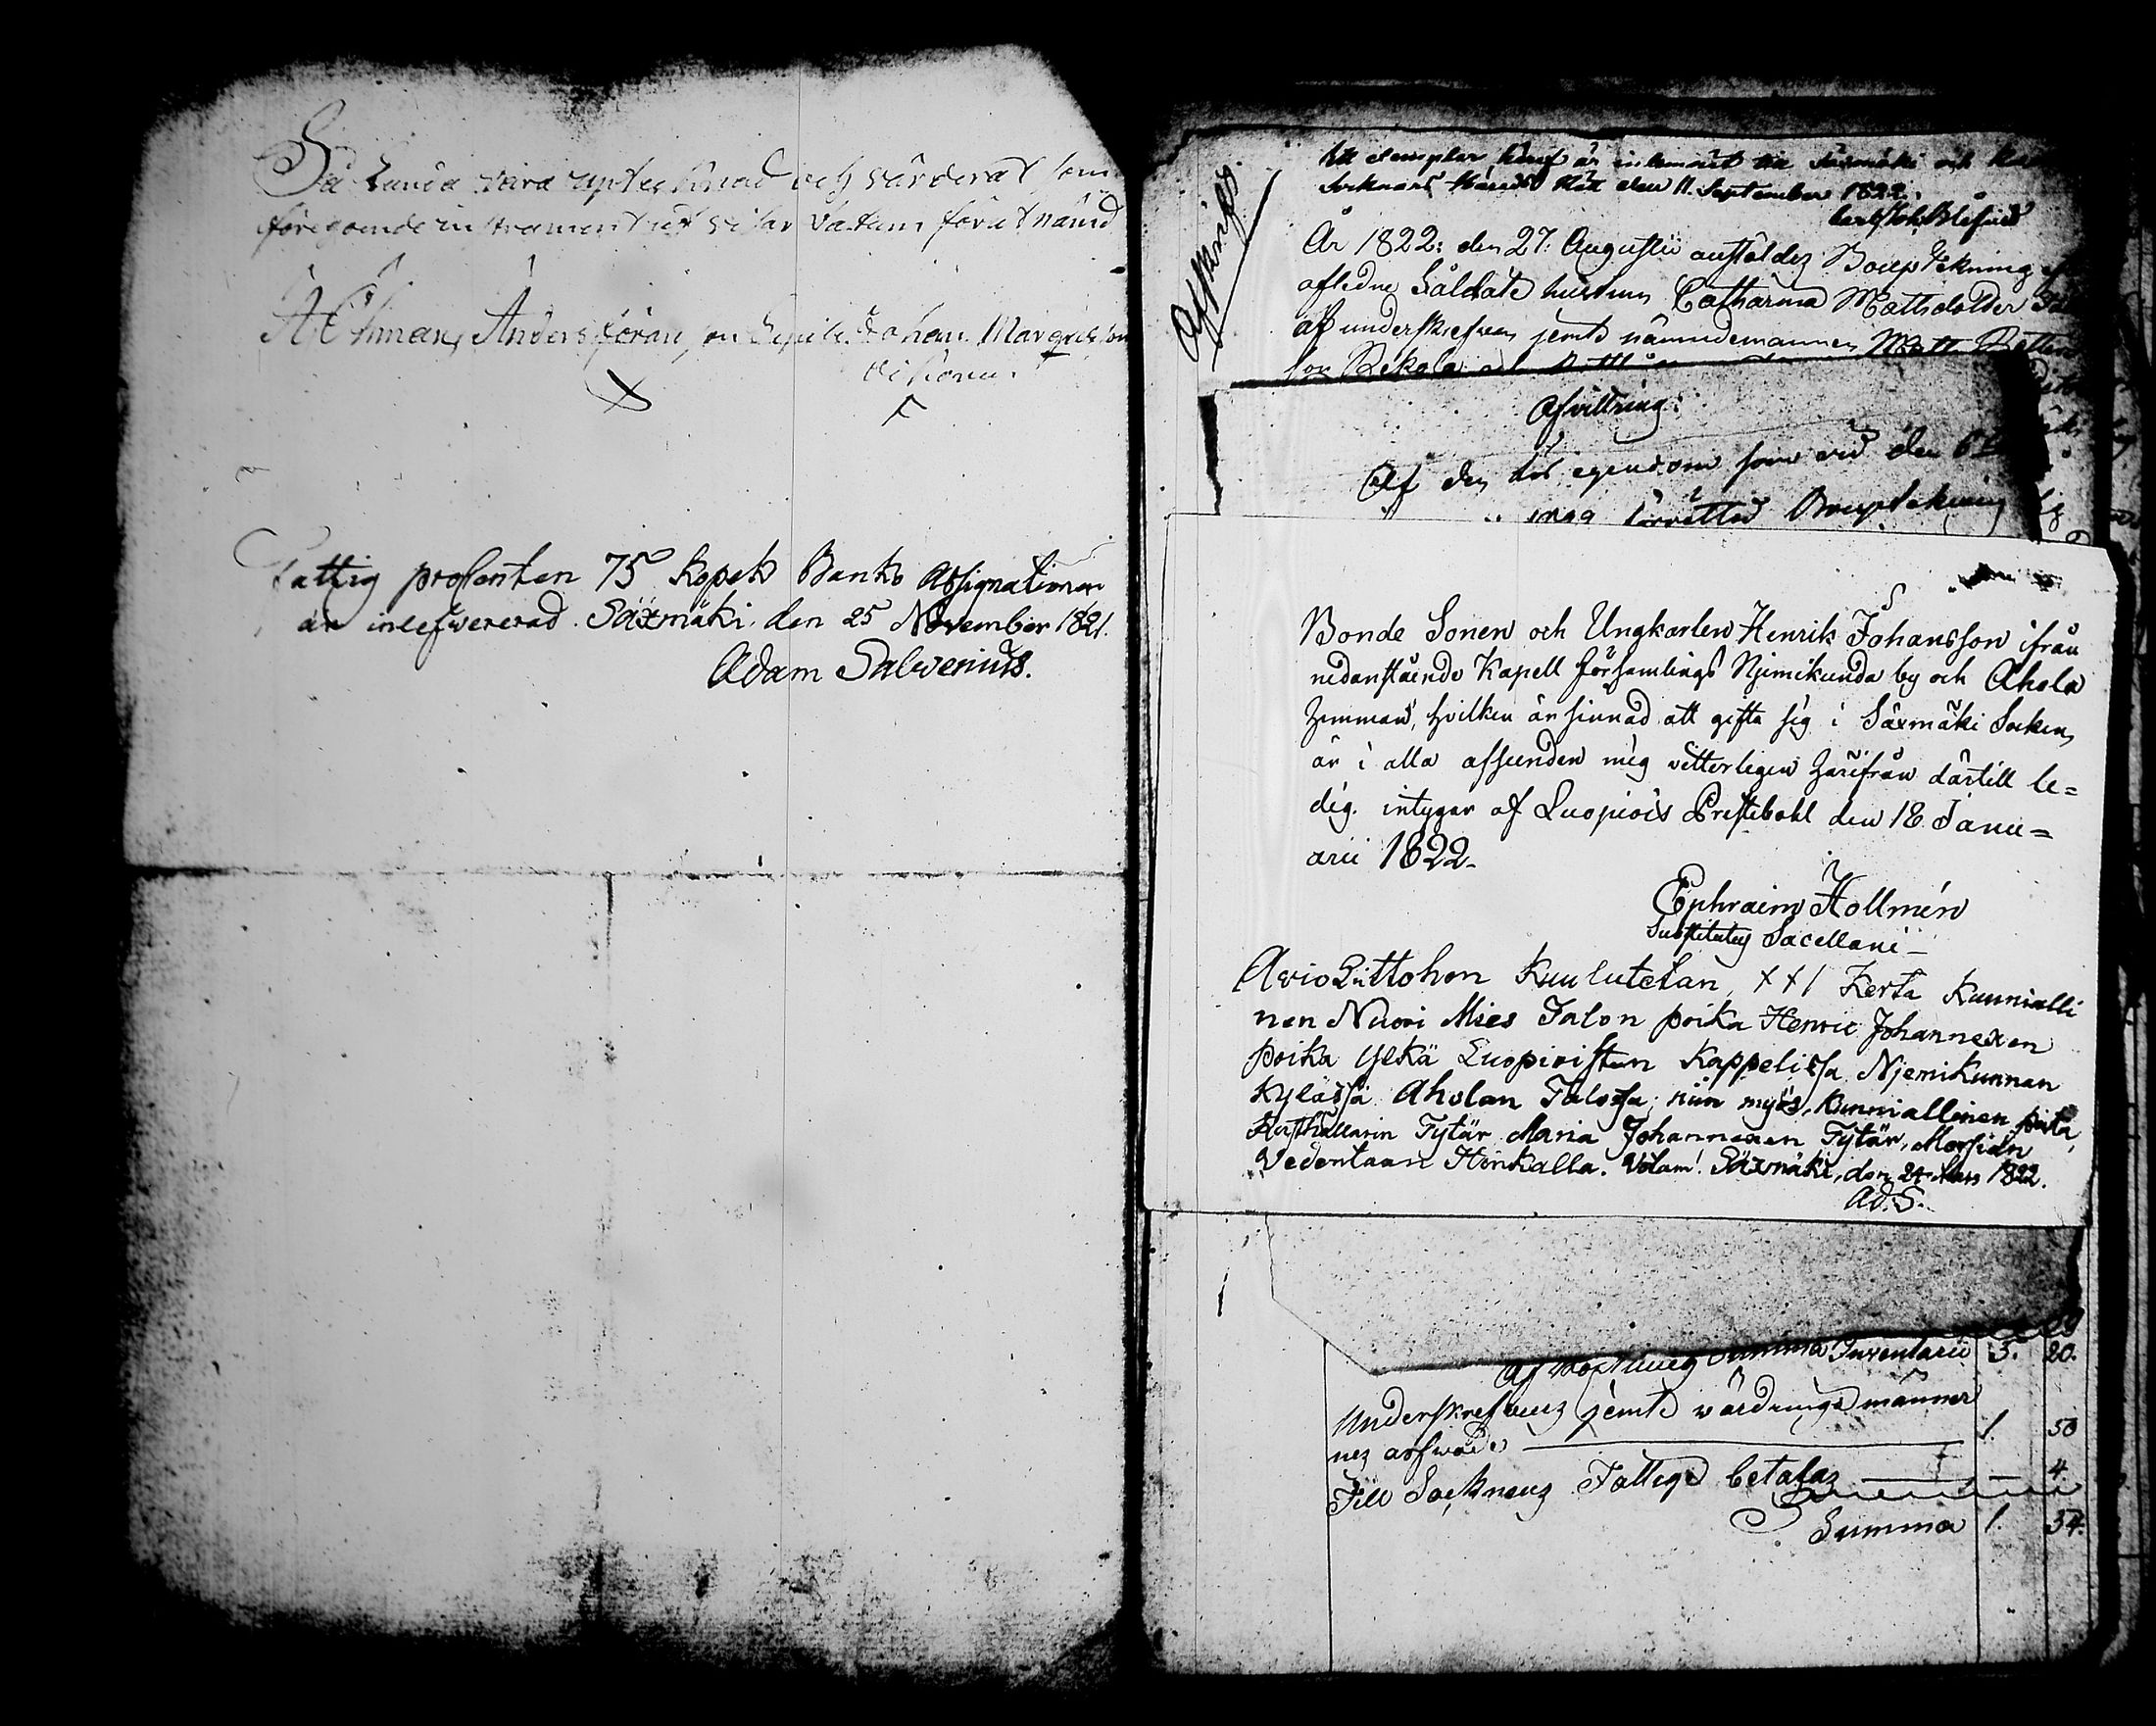 Så Lunda vara uptecknad och värderat som
föregående instrument ut visar Datum förut nämd
A Öhman, Anders Jöran, son Sepile. Johan Margrels son
X
Fattig prosenten 75 Kopek Banko Assignationer
är inlefwererad. Säxmäki den 25 November 1821.
Adam Salvenius.
Afskrift.
Ett exemplar häraf är inlemnat till Säxmäki och
Socknars Härads Rätt den 11. September 1822.
År 1822: den 27: Augustii anställdes Bouptekning
afledne Soldats hustrun Catharina Mattsdotter
af underskrefven jemte nämndemannen Matts
son Rekola
Afvittring:
Af den lös egendom som vid den
förrättad Bouptekning
Bonde Sonen och Ungkarlen Henrik Johansson ifrån
nedanstående Kapell församlings Njemikunda by och Ahola
hemman, hvilken är sinnad att gifta sig i Säxmäki Socken,
är i alla afseenden mig vitterligen härifrån därtill le=
dig. intygar af Luopiois Prestebohl den 18 Janu=
arii 1822.
Ephraim Hollmén
Substitutus Sacellani
Avio Liittohon Kuulutetan, ++/ Kerta Kunnialli
nen Nuori Mies Talon poika Henric Johannexen
poika Ylkä Luopioisten Kappelissa Njemikunnan
Kylässä Aholan Talossa; niin myös, Kunniallinen piika,
Rusthållarin Tytär Maria Johannexen Tytär, Morsian
Vedentaan Honkalla. Säxmäki, den 24 Mars 1822.
Ad. S.
Af Summa Inventarii 3. 20.
Underskrefvens jemte wärdringsmänner
nes arfwode 1. 50
Till Socknens Fattige betalas — 4
Summa 1. 54.